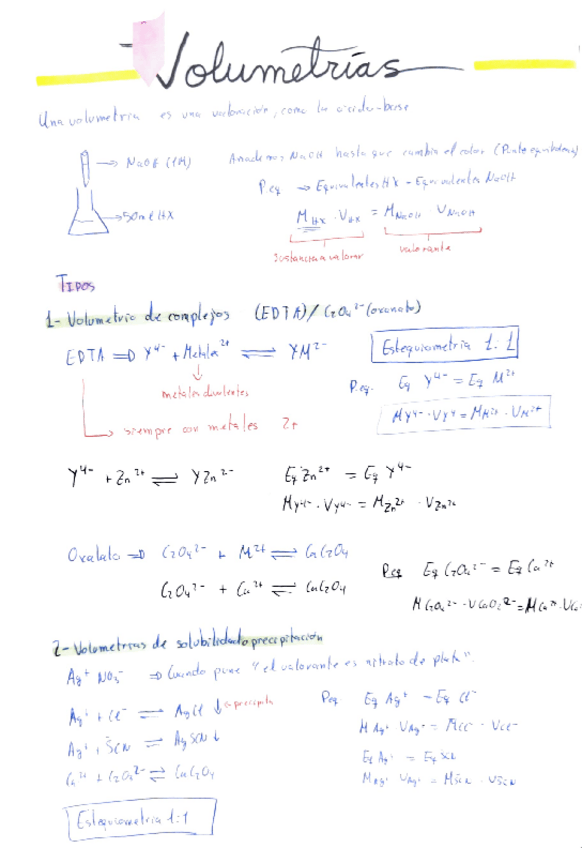 Volumetrías
Una volumetría es una valoración, como la ácido-base
NaOH (1M)
50ml HX
Añadimos NaOH hasta que cambia el color (Punto equivalencia)
P.eq → Equivalentes HX = Equivalentes NaOH
M HX · V HX = M NaOH · V NaOH
Sustancia a valorar
valorante
TIPOS
1- Volumetría de complejos (EDTA) / C2O4²⁻ (oxanato)
EDTA ⇒ Y⁴⁻ + Metales²⁺ ⇌ YM²⁻
Estequiometria 1:1
metales divalentes
siempre con metales 2+
P.eq. Eq Y⁴⁻ = Eq M²⁺
MY⁴⁻ · VY⁴⁻ = MM²⁺ · VM²⁺
Y⁴⁻ + Zn²⁺ ⇌ YZn²⁻
Eq Zn²⁺ = Eq Y⁴⁻
MY⁴⁻ · VY⁴⁻ = MZn²⁺ · VZn²⁺
Oxalato ⇒ C2O4²⁻ + M²⁺ ⇌ CaC2O4
C2O4²⁻ + Ca²⁺ ⇌ CaC2O4
P.eq Eq C2O4²⁻ = Eq Ca²⁺
M C2O4²⁻ · V C2O4²⁻ = M Ca²⁺ · V Ca
2- Volumetrías de solubilidad o precipitación
Ag⁺ NO3⁻ ⇒ Cuando pone "el valorante es nitrato de plata".
Ag⁺ + Cl⁻ ⇌ AgCl ↓ precipita
Ag⁺ + SCN⁻ ⇌ AgSCN ↓
Ca²⁺ + C2O4²⁻ ⇌ CaC2O4
Peq Eq Ag⁺ = Eq Cl⁻
M Ag⁺ · V Ag⁺ = M Cl⁻ · V Cl⁻
Eq Ag⁺ =
M Ag⁺ · V Ag⁺ = M SCN⁻ · V SCN⁻
Estequiometria 1:1